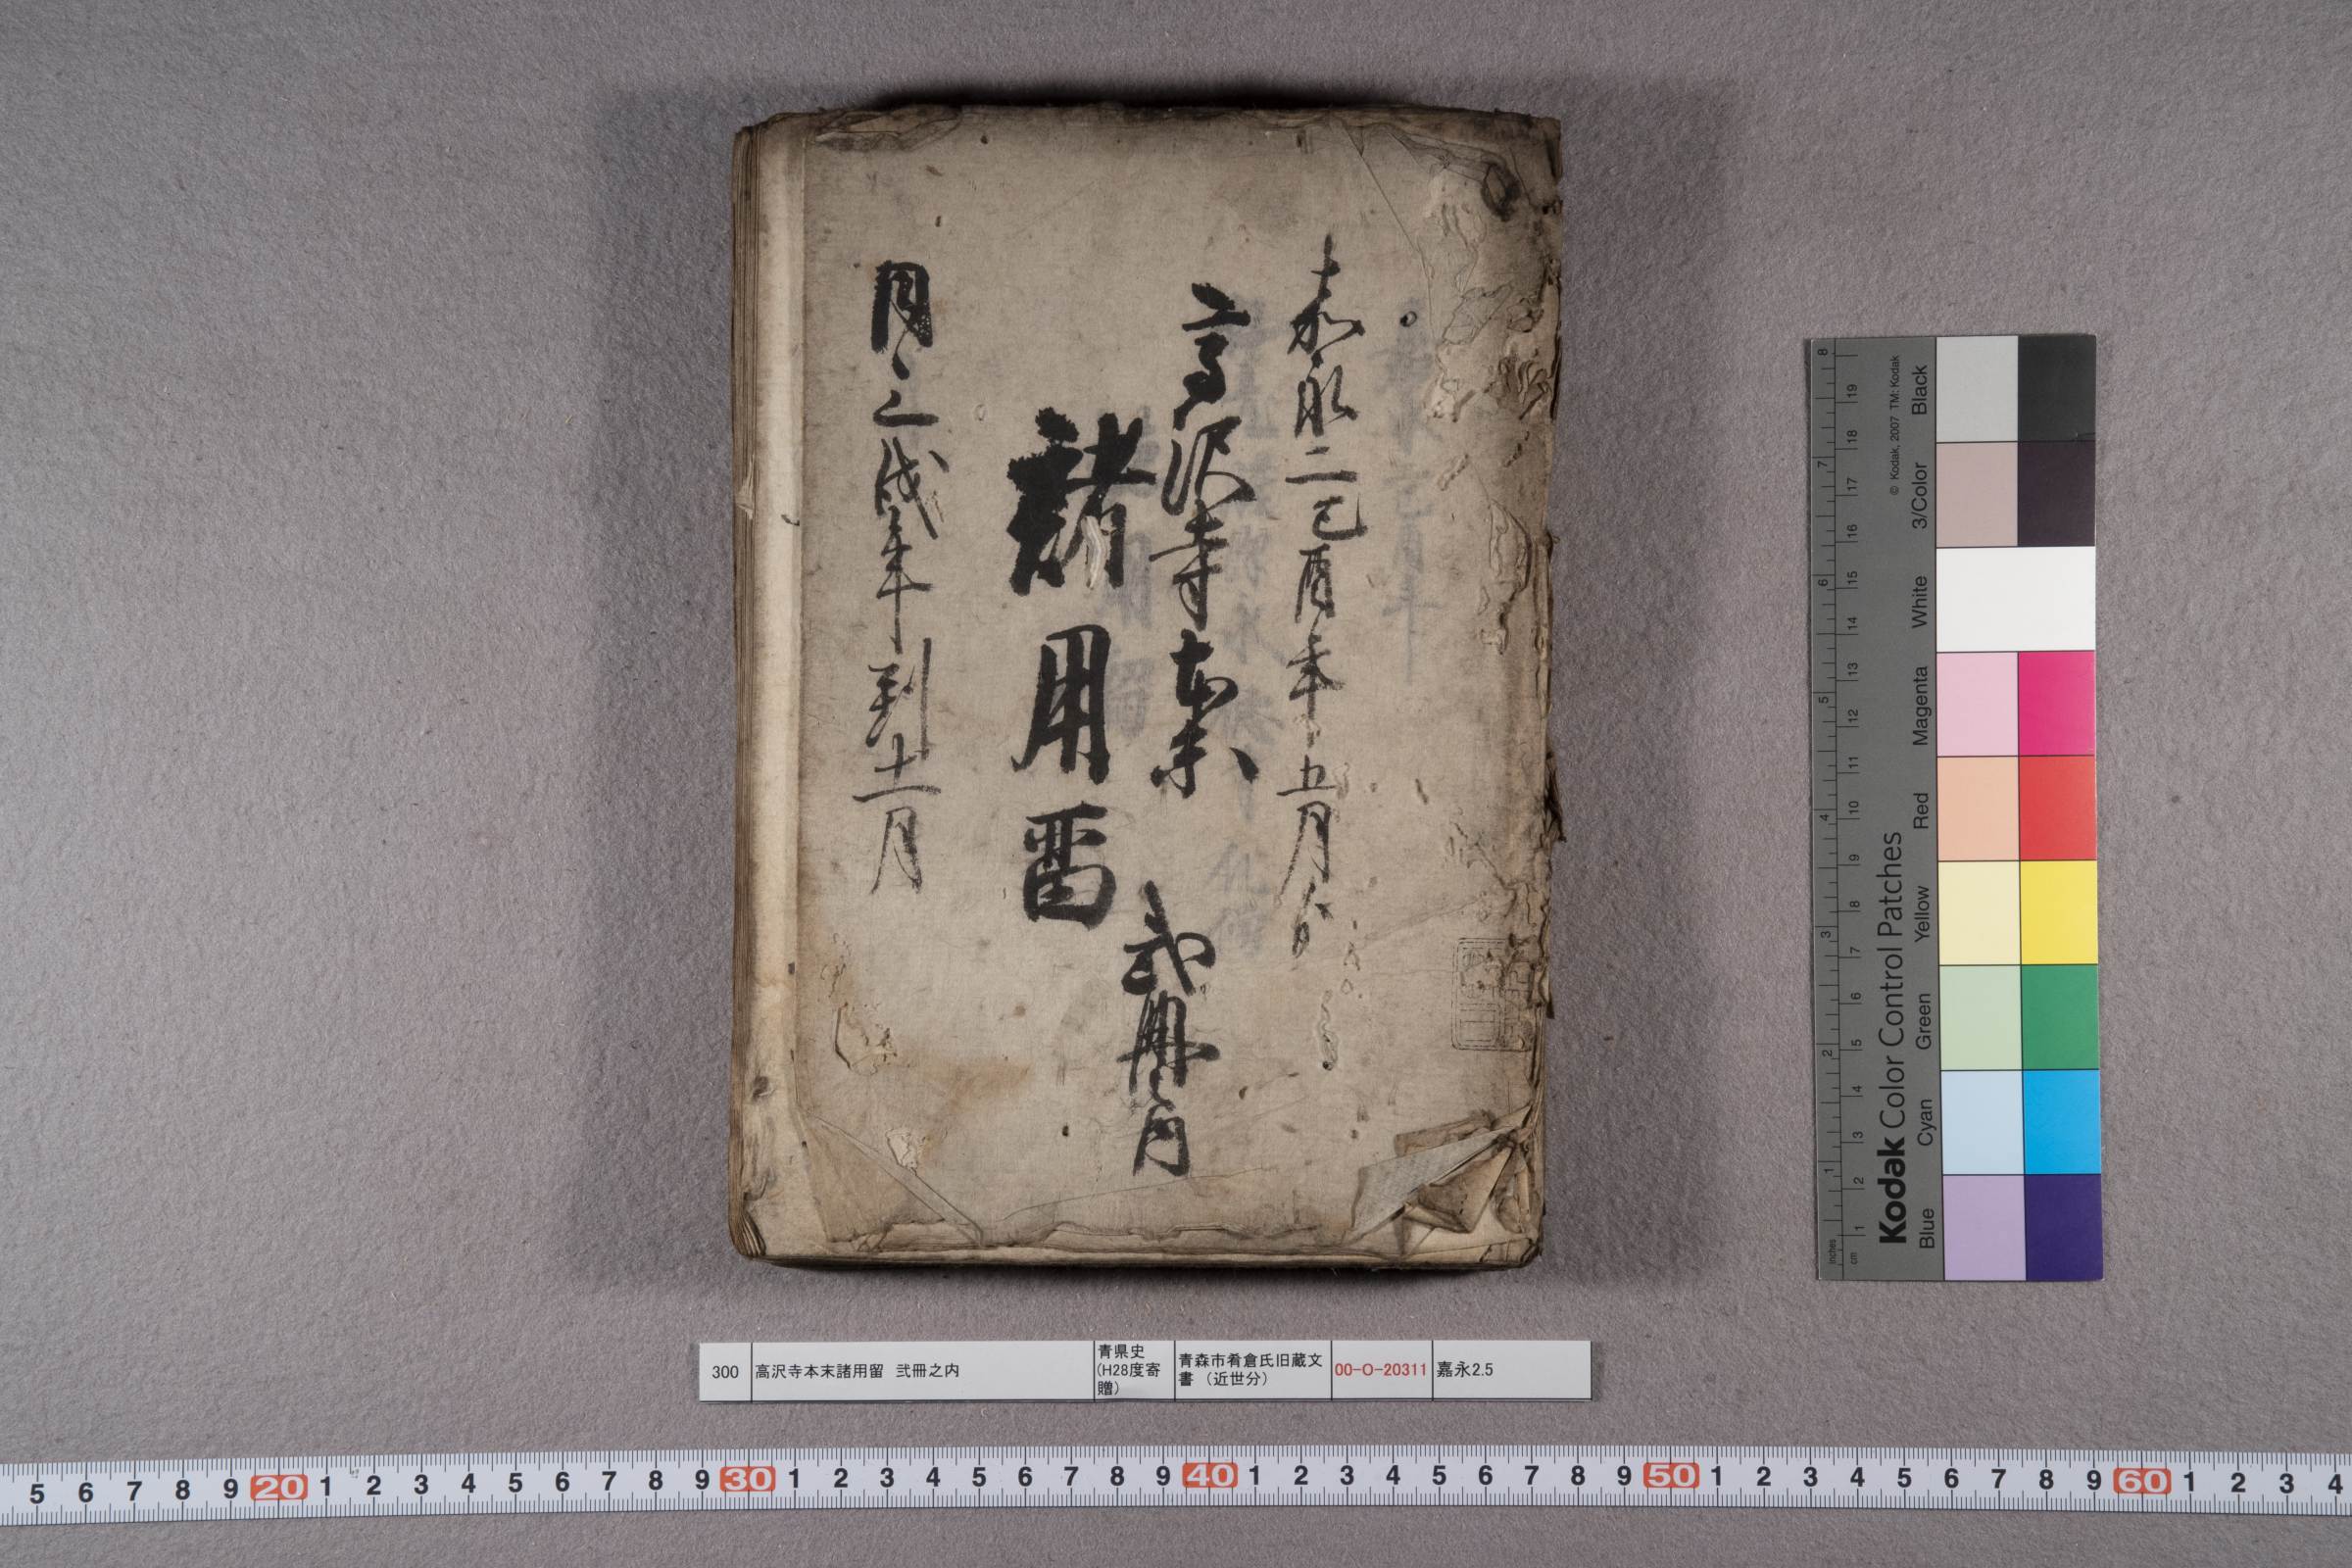 嘉永二己酉年五月ゟ
高沢寺本末
諸用留
弐冊之内
同三戌年到十二月
300 高沢寺本末諸用留 弐冊之内 青県史(H28度寄贈) 青森市肴倉氏旧蔵文書(近世分) 00-O-20311 嘉永2.5
Kodak Color Control Patches
© Kodak, 2007 TM: Kodak
Blue Cyan Green Yellow Red Magenta White 3/Color Black
inches 1 2 3 4 5 6 7 8
cm 1 2 3 4 5 6 7 8 9 10 11 12 13 14 15 16 17 18 19
5 6 7 8 9 20 1 2 3 4 5 6 7 8 9 30 1 2 3 4 5 6 7 8 9 40 1 2 3 4 5 6 7 8 9 50 1 2 3 4 5 6 7 8 9 60 1 2 3 4